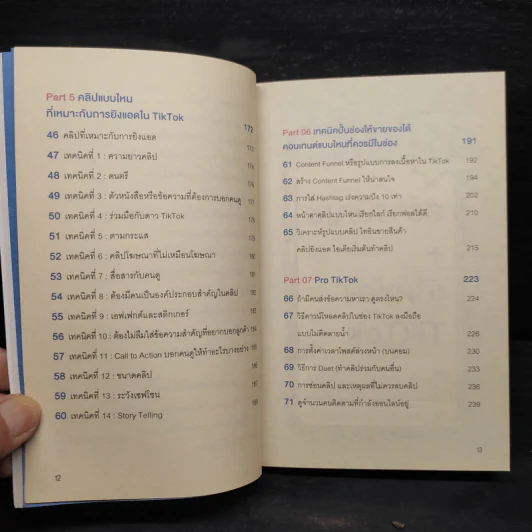 Part 5 คลิปแบบไหน
ที่เหมาะกับการยิงแอดใน TikTok 172
46 คลิปที่เหมาะกับการยิงแอด
47 เทคนิคที่ 1 : ความยาวคลิป
48 เทคนิคที่ 2 : ดนตรี
49 เทคนิคที่ 3 : ตัวหนังสือหรือข้อความที่ต้องการบอกคนดู
50 เทคนิคที่ 4 : ร่วมมือกับดาว TikTok
51 เทคนิคที่ 5 : ตามกระแส
52 เทคนิคที่ 6 : คลิปโฆษณาที่ไม่เหมือนโฆษณา
53 เทคนิคที่ 7 : สื่อสารกับคนดู
54 เทคนิคที่ 8 : ต้องมีคนเป็นองค์ประกอบสำคัญในคลิป
55 เทคนิคที่ 9 : เอฟเฟกต์และสติกเกอร์
56 เทคนิคที่ 10 : ต้องไม่ลืมใส่ข้อความสำคัญที่อยากบอกลูกค้า
57 เทคนิคที่ 11 : Call to Action บอกคนดูให้ทำอะไรบางอย่าง
58 เทคนิคที่ 12 : ขนาดคลิป
59 เทคนิคที่ 13 : ระวังเซฟโซน
60 เทคนิคที่ 14 : Story Telling
12
Part 06 เทคนิคปั้นช่องให้ขายของได้
คอนเทนต์แบบไหนที่ควรมีในช่อง 191
61 Content Funnel หรือรูปแบบการลงเนื้อหาใน TikTok 192
62 สร้าง Content Funnel ให้น่าสนใจ 194
63 การใส่ Hashtag เร่งความปัง 10 เท่า 202
64 หน้าตาคลิปแบบไหน เรียกไลก์ เรียกฟอลได้ดี 210
65 วิเคราะห์รูปแบบคลิป ไทอินขายสินค้า
คลิปยิงแอด ไอเดียเริ่มต้นทำคลิป 215
Part 07 Pro TikTok 223
66 ถ้ามีคนส่งข้อความหาเรา ดูตรงไหน? 224
67 วิธีดาวน์โหลดคลิปในช่อง TikTok ลงมือถือ
แบบไม่ติดลายน้ำ 226
68 การตั้งค่าเวลาโพสต์ล่วงหน้า (บนคอม) 230
69 วิธีการ Duet (ทำคลิปร่วมกับคนอื่น) 233
70 การซ่อนคลิป และเหตุผลที่ไม่ควรลบคลิป 236
71 ดูจำนวนคนติดตามที่กำลังออนไลน์อยู่ 239
13